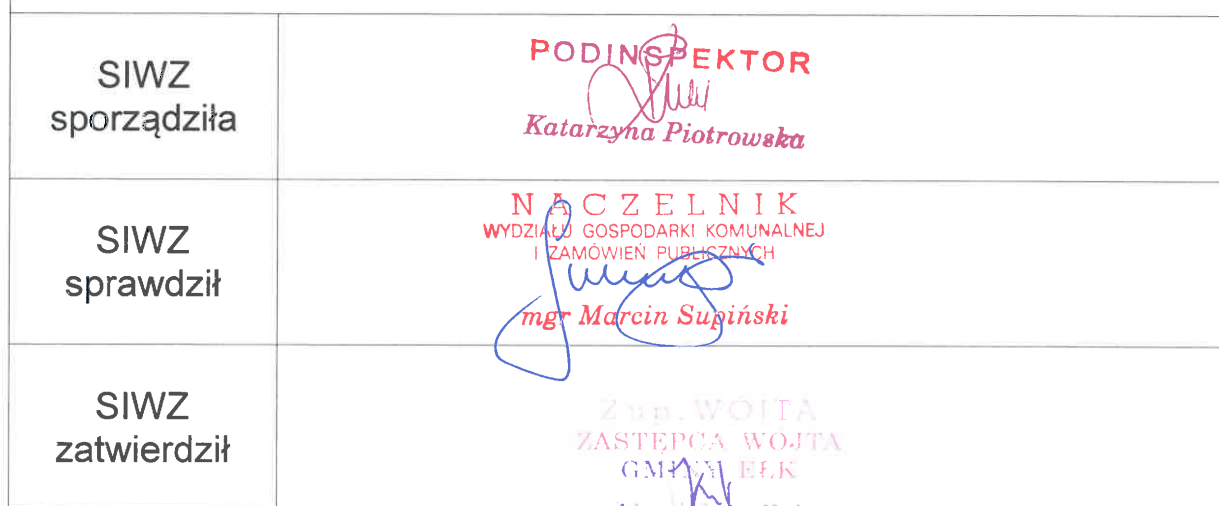 SIWZ
sporządziła
PODINSPEKTOR
Katarzyna Piotrowska
SIWZ
sprawdził
NACZELNIK
WYDZIAŁU GOSPODARKI KOMUNALNEJ
I ZAMÓWIEŃ PUBLICZNYCH
mgr Marcin Supiński
SIWZ
zatwierdził
Z up. WÓJTA
ZASTĘPCA WÓJTA
GMINY EŁK